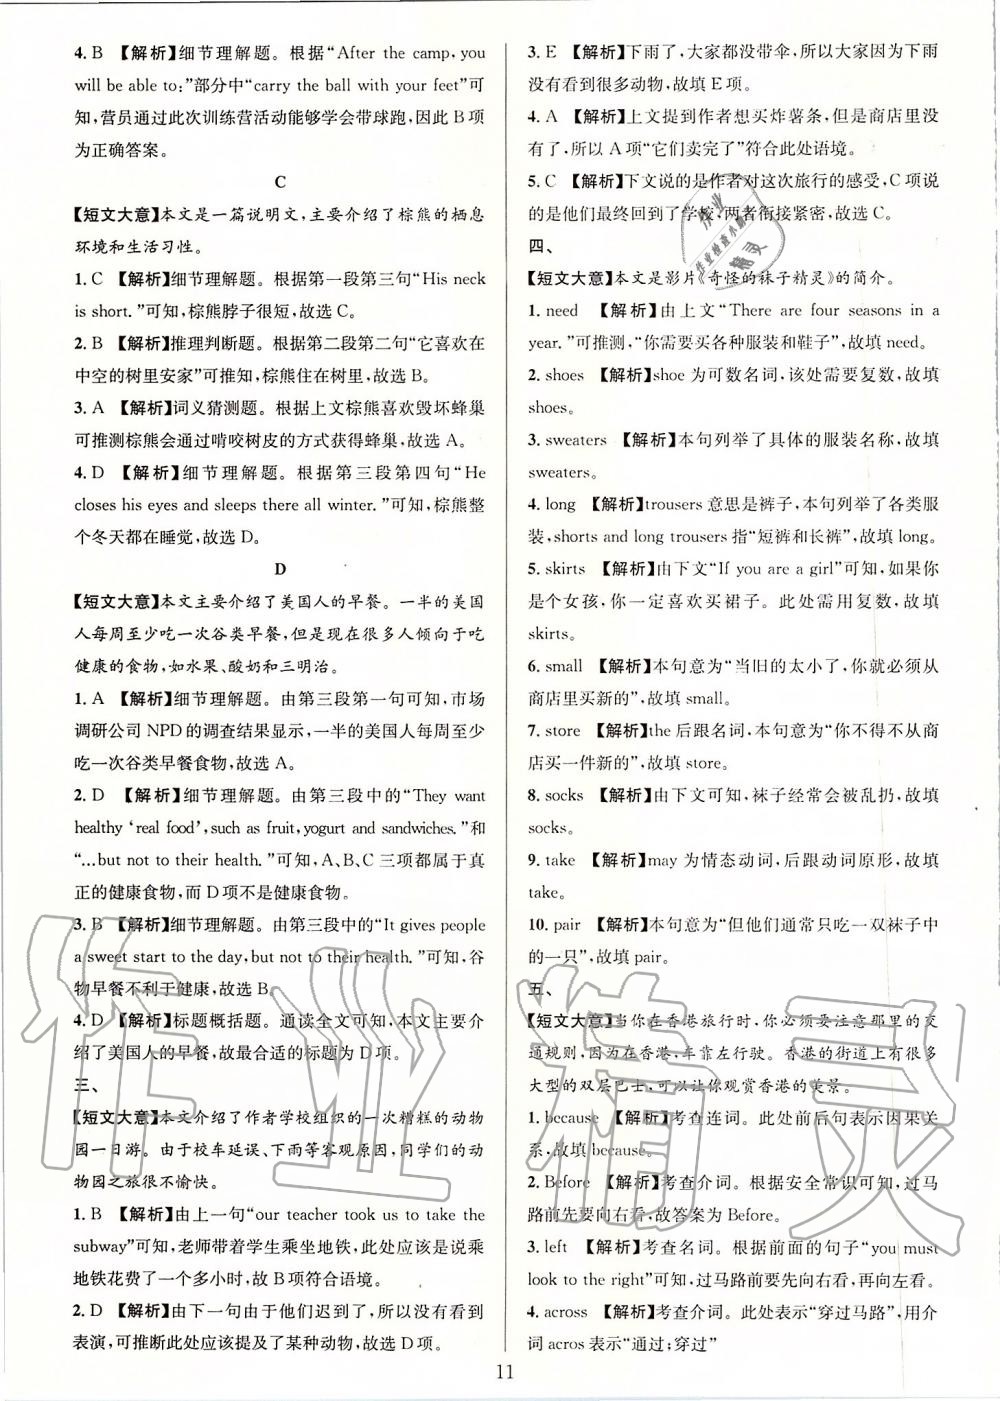 4. B 【解析】细节理解题。根据“After the camp, you
will be able to:”部分中“carry the ball with your feet”可
知，营员通过此次训练营活动能够学会带球跑，因此 B 项
为正确答案。
C
【短文大意】本文是一篇说明文，主要介绍了棕熊的栖息
环境和生活习性。
1. C 【解析】细节理解题。根据第一段第三句“His neck
is short.”可知，棕熊脖子很短，故选 C。
2. B 【解析】推理判断题。根据第二段第二句“它喜欢在
中空的树里安家”可推知，棕熊住在树里，故选 B。
3. A 【解析】词义猜测题。根据上文棕熊喜欢毁坏蜂巢
可推测棕熊会通过啃咬树皮的方式获得蜂巢，故选 A。
4. D 【解析】细节理解题。根据第三段第四句“He
closes his eyes and sleeps there all winter.”可知，棕熊整
个冬天都在睡觉，故选 D。
D
【短文大意】本文主要介绍了美国人的早餐。一半的美国
人每周至少吃一次谷类早餐，但是现在很多人倾向于吃
健康的食物，如水果、酸奶和三明治。
1. A 【解析】细节理解题。由第三段第一句可知，市场
调研公司 NPD 的调查结果显示，一半的美国人每周至少
吃一次谷类早餐食物，故选 A。
2. D 【解析】细节理解题。由第三段中的“They want
healthy ‘real food’, such as fruit, yogurt and sandwiches.”和
“…but not to their health.”可知，A、B、C 三项都属于真
正的健康食物，而 D 项不是健康食物。
3. B 【解析】细节理解题。由第三段中的“It gives people
a sweet start to the day, but not to their health.”可知，谷
物早餐不利于健康，故选 B。
4. D 【解析】标题概括题。通读全文可知，本文主要介
绍了美国人的早餐，故最合适的标题为 D 项。
三、
【短文大意】本文介绍了作者学校组织的一次糟糕的动物
园一日游。由于校车延误、下雨等客观原因，同学们的动
物园之旅很不愉快。
1. B 【解析】由上一句“our teacher took us to take the
subway”可知，老师带着学生乘坐地铁，此处应该是说乘
地铁花费了一个多小时，故 B 项符合语境。
2. D 【解析】由下一句由于他们迟到了，所以没有看到
表演，可推断此处应该提及了某种动物，故选 D 项。
3. E 【解析】下雨了，大家都没带伞，所以大家因为下雨
没有看到很多动物，故填 E 项。
4. A 【解析】上文提到作者想买炸薯条，但是商店里没
有了，所以 A 项“它们卖完了”符合此处语境。
5. C 【解析】下文说的是作者对这次旅行的感受，C 项说
的是他们最终回到了学校，两者衔接紧密，故选 C。
四、
【短文大意】本文是影片《奇怪的袜子精灵》的简介。
1. need 【解析】由上文“There are four seasons in a
year.”可推测，“你需要买各种服装和鞋子”，故填 need。
2. shoes 【解析】shoe 为可数名词，该处需要复数，故填
shoes。
3. sweaters 【解析】本句列举了具体的服装名称，故填
sweaters。
4. long 【解析】trousers 意思是裤子，本句列举了各类服
装，shorts and long trousers 指“短裤和长裤”，故填 long。
5. skirts 【解析】由下文“If you are a girl”可知，如果你
是个女孩，你一定喜欢买裙子。此处需用复数，故填
skirts。
6. small 【解析】本句意为“当旧的太小了，你就必须从
商店里买新的”，故填 small。
7. store 【解析】the 后跟名词，本句意为“你不得不从商
店买一件新的”，故填 store。
8. socks 【解析】由下文可知，袜子经常会被乱扔，故填
socks。
9. take 【解析】may 为情态动词，后跟动词原形，故填
take。
10. pair 【解析】本句意为“但他们通常只吃一双袜子中
的一只”，故填 pair。
五、
【短文大意】当你在香港旅行时，你必须要注意那里的交
通规则，因为在香港，车靠左行驶。香港的街道上有很多
大型的双层巴士，可以让你观赏香港的美景。
1. because 【解析】考查连词。此处前后句表示因果关
系，故填 because。
2. Before 【解析】考查介词。根据安全常识可知，过马
路前先要向右看，故答案为 Before。
3. left 【解析】考查名词。根据前面的句子“you must
look to the right”可知，过马路前要先向右看，再向左看。
4. across 【解析】考查介词。此处表示“穿过马路”，用介
词 acros 表示“通过；穿过”
11
作业精灵